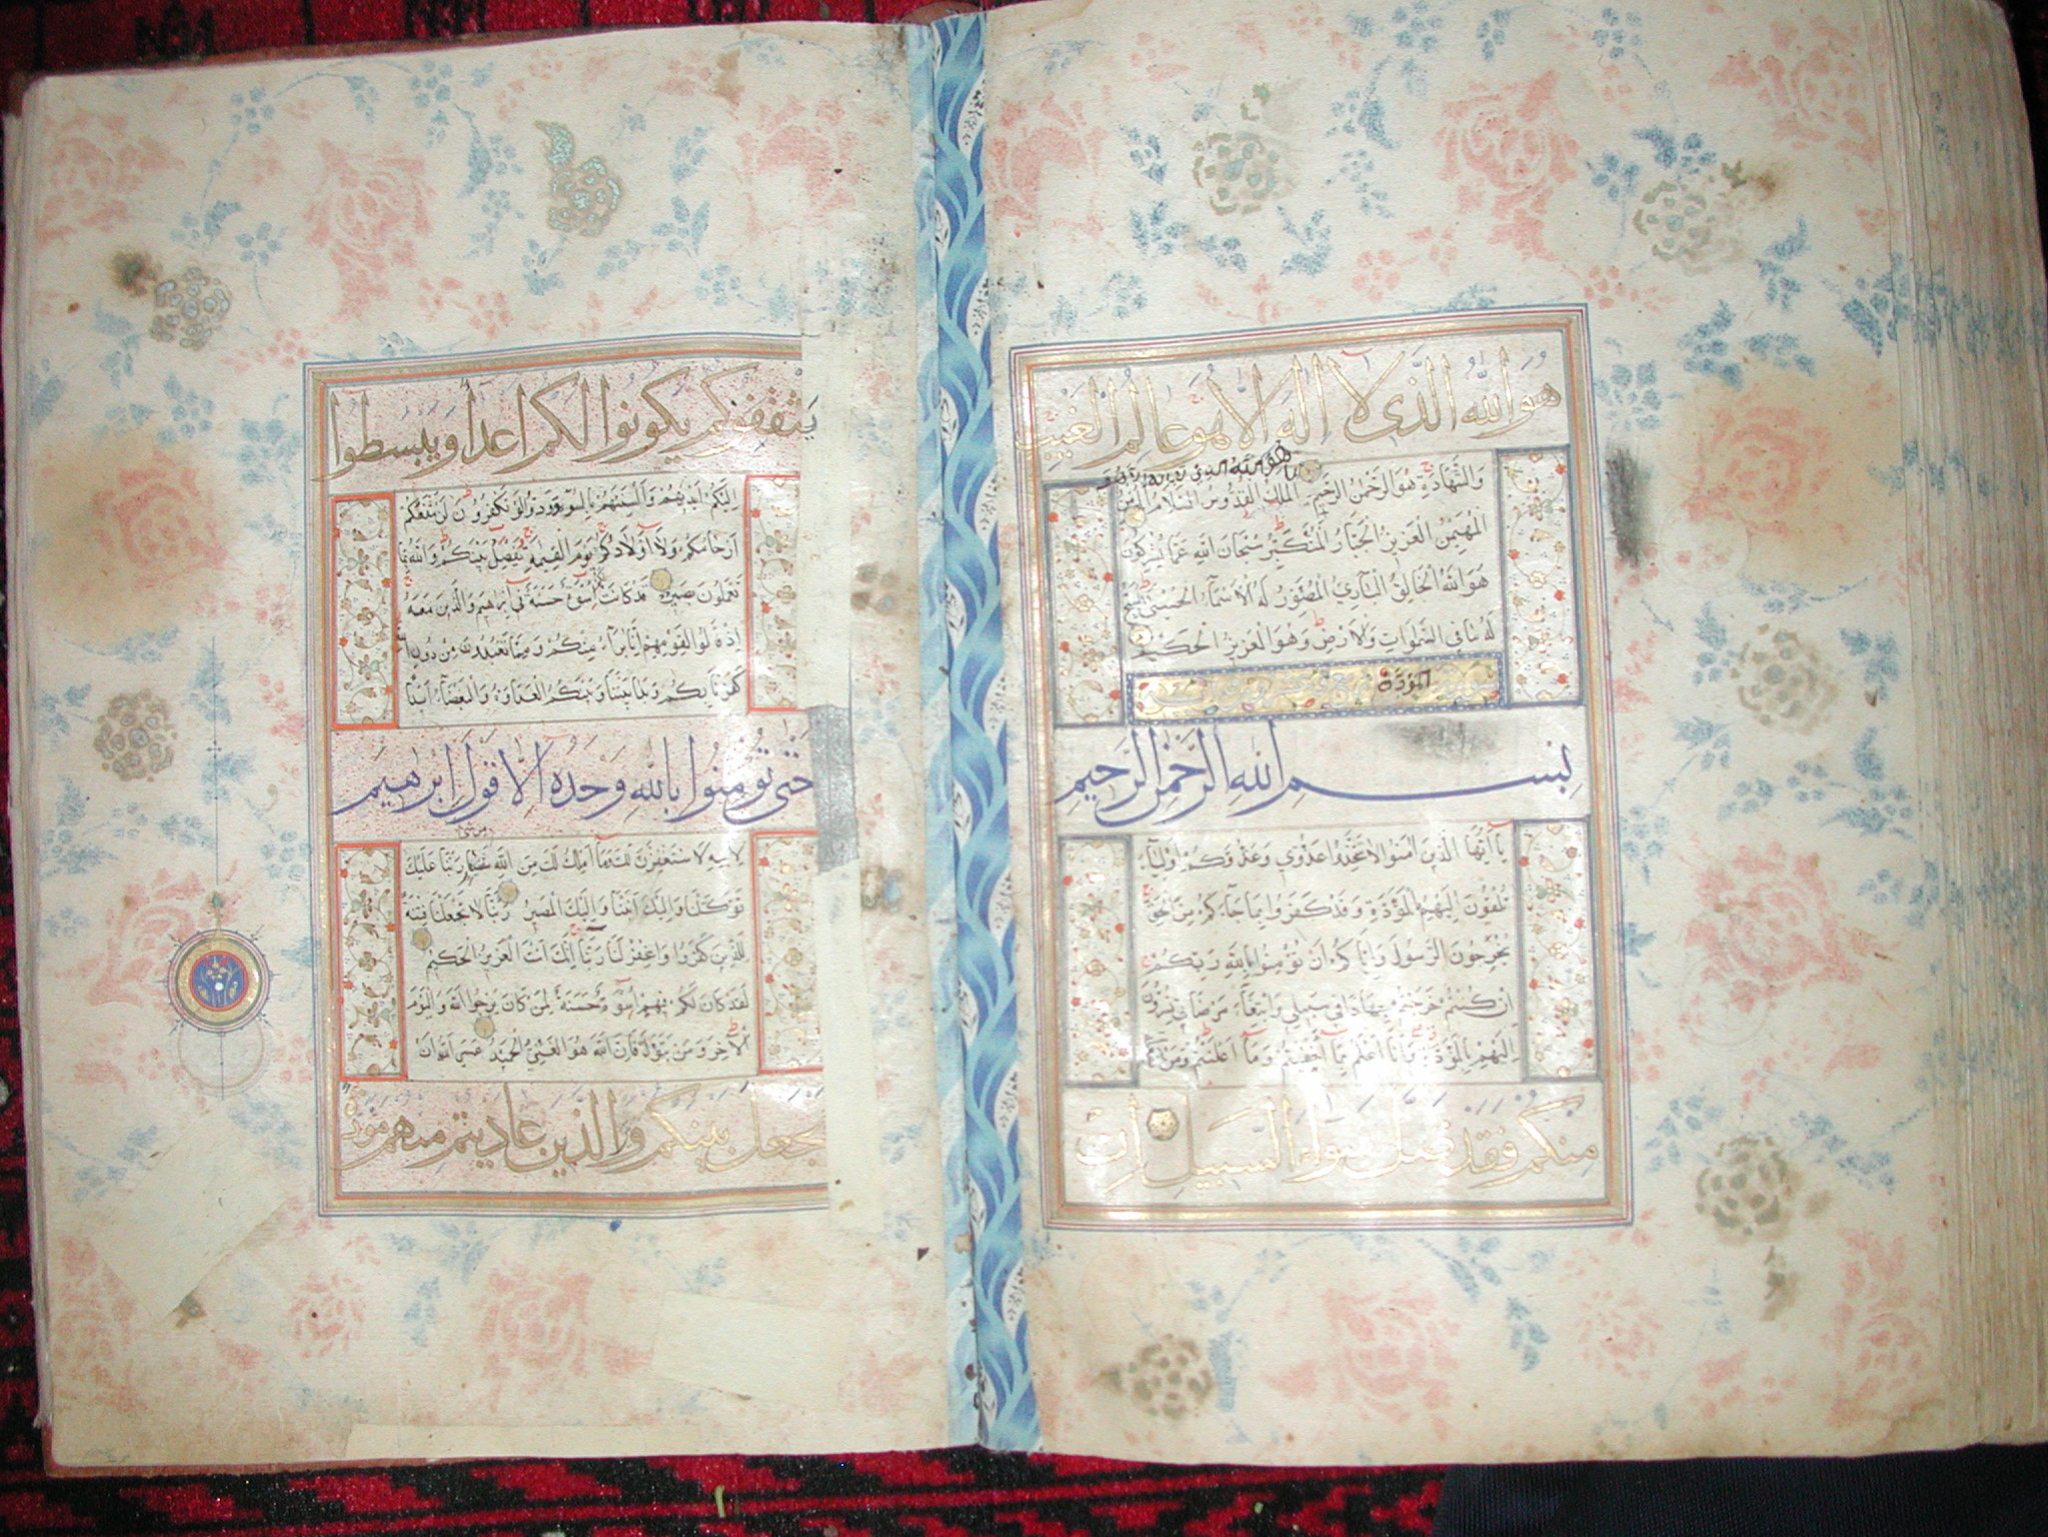 هُوَ اللّٰهُ الَّذِى لَا اِلٰهَ اِلَّا هُوَ عَالِمُ الْغَيْبِ
هو الله الذى
وَالشَّهَادَةِ هُوَ الرَّحْمٰنُ الرَّحِيمُ الْمَلِكُ الْقُدُّوسُ السَّلَامُ الْمُؤْمِنُ
الْمُهَيْمِنُ الْعَزِيزُ الْجَبَّارُ الْمُتَكَبِّرُ سُبْحَانَ اللّٰهِ عَمَّا يُشْرِكُونَ
هُوَ اللّٰهُ الْخَالِقُ الْبَارِئُ الْمُصَوِّرُ لَهُ الْاَسْمَاءُ الْحُسْنٰى يُسَبِّحُ
لَهُ مَا فِي السَّمٰوَاتِ وَالْاَرْضِ وَهُوَ الْعَزِيزُ الْحَكِيمُ
المودة
بِسْمِ اللّٰهِ الرَّحْمٰنِ الرَّحِيمِ
يَا اَيُّهَا الَّذِينَ اٰمَنُوا لَا تَتَّخِذُوا عَدُوِّي وَعَدُوَّكُمْ اَوْلِيَاءَ
تُلْقُونَ اِلَيْهِمْ بِالْمَوَدَّةِ وَقَدْ كَفَرُوا بِمَا جَاءَكُمْ مِنَ الْحَقِّ
يُخْرِجُونَ الرَّسُولَ وَاِيَّاكُمْ اَنْ تُؤْمِنُوا بِاللّٰهِ رَبِّكُمْ
اِنْ كُنْتُمْ خَرَجْتُمْ جِهَادًا فِي سَبِيلِي وَابْتِغَاءَ مَرْضَاتِي تُسِرُّونَ
اِلَيْهِمْ بِالْمَوَدَّةِ وَاَنَا اَعْلَمُ بِمَا اَخْفَيْتُمْ وَمَا اَعْلَنْتُمْ وَمَنْ يَفْعَلْهُ
مِنْكُمْ فَقَدْ ضَلَّ سَوَاءَ السَّبِيلِ اِنْ
يَثْقَفُوكُمْ يَكُونُوا لَكُمْ اَعْدَاءً وَيَبْسُطُوا
اِلَيْكُمْ اَيْدِيَهُمْ وَاَلْسِنَتَهُمْ بِالسُّوءِ وَوَدُّوا لَوْ تَكْفُرُونَ لَنْ تَنْفَعَكُمْ
اَرْحَامُكُمْ وَلَا اَوْلَادُكُمْ يَوْمَ الْقِيٰمَةِ يَفْصِلُ بَيْنَكُمْ وَاللّٰهُ بِمَا
تَعْمَلُونَ بَصِيرٌ قَدْ كَانَتْ لَكُمْ اُسْوَةٌ حَسَنَةٌ فِي اِبْرٰهِيمَ وَالَّذِينَ مَعَهُ
اِذْ قَالُوا لِقَوْمِهِمْ اِنَّا بُرَءَاءُ مِنْكُمْ وَمِمَّا تَعْبُدُونَ مِنْ دُونِ اللّٰهِ
كَفَرْنَا بِكُمْ وَبَدَا بَيْنَنَا وَبَيْنَكُمُ الْعَدَاوَةُ وَالْبَغْضَاءُ اَبَدًا
حَتّٰى تُؤْمِنُوا بِاللّٰهِ وَحْدَهُ اِلَّا قَوْلَ اِبْرٰهِيمَ
لِاَبِيهِ لَاَسْتَغْفِرَنَّ لَكَ وَمَا اَمْلِكُ لَكَ مِنَ اللّٰهِ مِنْ شَىْءٍ رَبَّنَا عَلَيْكَ
تَوَكَّلْنَا وَاِلَيْكَ اَنَبْنَا وَاِلَيْكَ الْمَصِيرُ رَبَّنَا لَا تَجْعَلْنَا فِتْنَةً
لِلَّذِينَ كَفَرُوا وَاغْفِرْ لَنَا رَبَّنَا اِنَّكَ اَنْتَ الْعَزِيزُ الْحَكِيمُ
لَقَدْ كَانَ لَكُمْ فِيهِمْ اُسْوَةٌ حَسَنَةٌ لِمَنْ كَانَ يَرْجُوا اللّٰهَ وَالْيَوْمَ
الْاٰخِرَ وَمَنْ يَتَوَلَّ فَاِنَّ اللّٰهَ هُوَ الْغَنِيُّ الْحَمِيدُ عَسَى اللّٰهُ اَنْ
يَجْعَلَ بَيْنَكُمْ وَبَيْنَ الَّذِينَ عَادَيْتُمْ مِنْهُمْ مَوَدَّةً